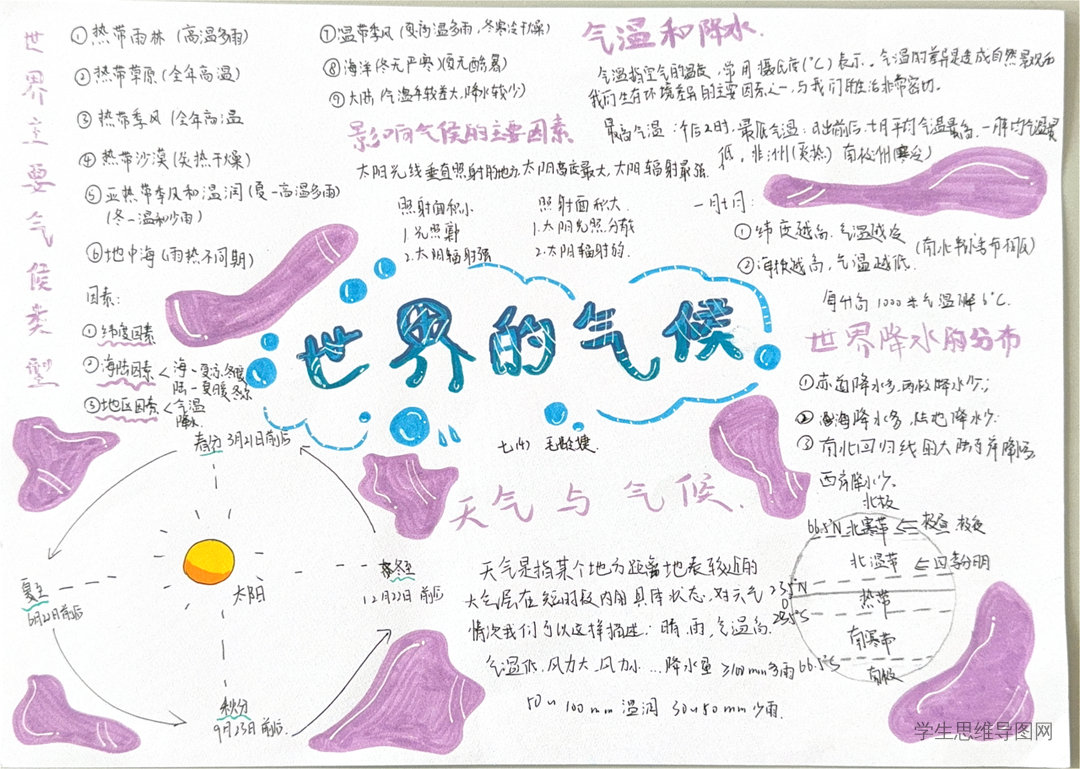 世界主要气候类型
①热带雨林(高温多雨)
②热带草原(全年高温)
③热带季风(全年高温
④热带沙漠(炎热干燥)
⑤亚热带季风和温润(夏-高温多雨)
(冬-温和少雨)
⑥地中海(雨热不同期)
因素:
①纬度因素
②海陆因素<海-夏凉,冬暖
陆-夏暖,冬凉
③地区因素<气温
降水
⑦温带季风(夏高温多雨,冬寒冷干燥)
⑧海洋(冬无严寒)(夏无酷暑)
⑨大陆(气温年较差大,降水较少)
影响气候的主要因素
太阳光线垂直照射的地方,太阳高度最大,太阳辐射最强.
照射面积小
1.光照
2.太阳辐射强
照射面积大
1.太阳光照分散
2.太阳辐射
气温和降水.
气温指空气的温度,常用摄氏度(℃)表示.。气温的差异是造成自然景观和
我们生存环境差异的主要因素之一,与我们的生活非常密切.
最高气温:午后2时,最低气温:日出前后,七月平均气温最高,一月均气温最
低,非洲(炎热)南极洲(寒冷)
①纬度越高,气温越
(南北
②海拔越高,气温越低.
每升高1000米气温降6℃.
世界降水的分布
①赤道降水多,两极降水少;
②沿海降水多,陆地降水少.
③南北回归线的大陆东岸降
西岸降水少。
世界的气候
七(4)
天气与气候.
天气是指某个地方距离地表较近的
大气层在短时段内的具体状态,对天气
情况我们可以这样描述:晴,雨,气温高.
气温低,风力大,风力小…降水量≥100mm多雨
50~100mm湿润 30~50mm少雨.
春分 3月21日前后
夏至
6月22日前后
太阳
冬至
12月22日前后
秋分
9月23日前后
北极
66.5°N 北寒带 极昼.极夜
北温带 四季分明
23.5°N
热带
0
23.5°S
南寒带
66.5°S
南极
学生思维导图网